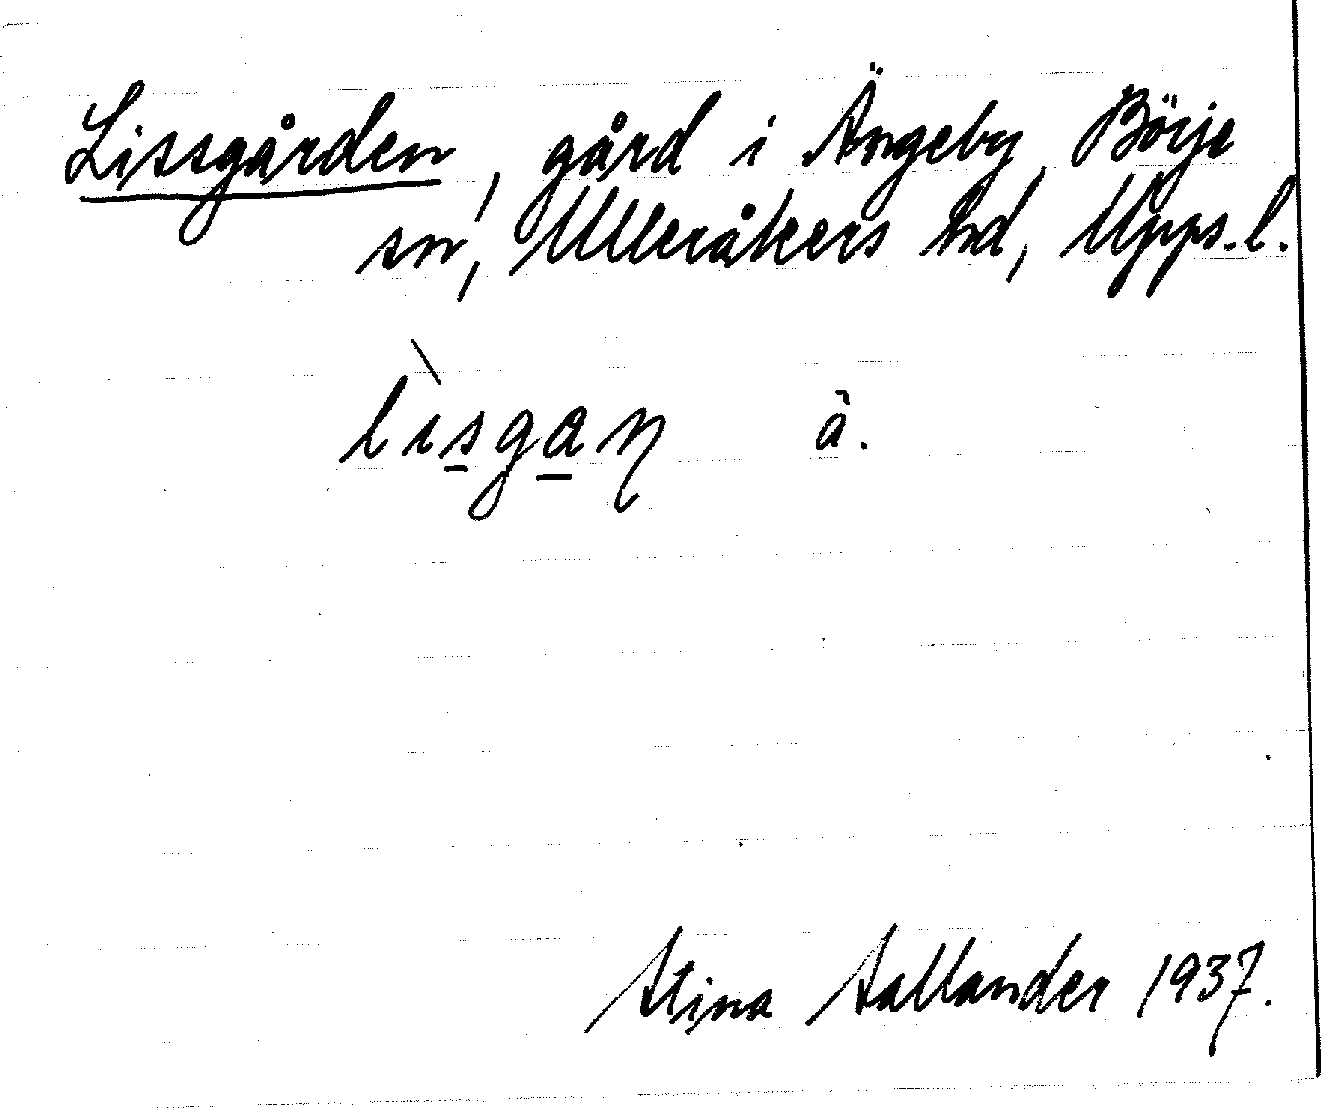 Lissgården, gård i Ängeby, Börje
sn, Ulleråkers hd, Upps. l.
lìsgaɳ â.
Stina Sallander 1937.